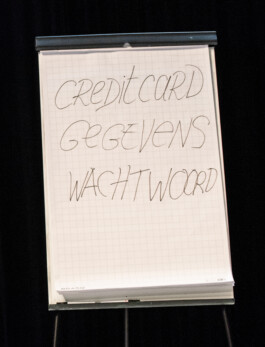 CREDITCARD
GEGEVENS
WACHTWOORD